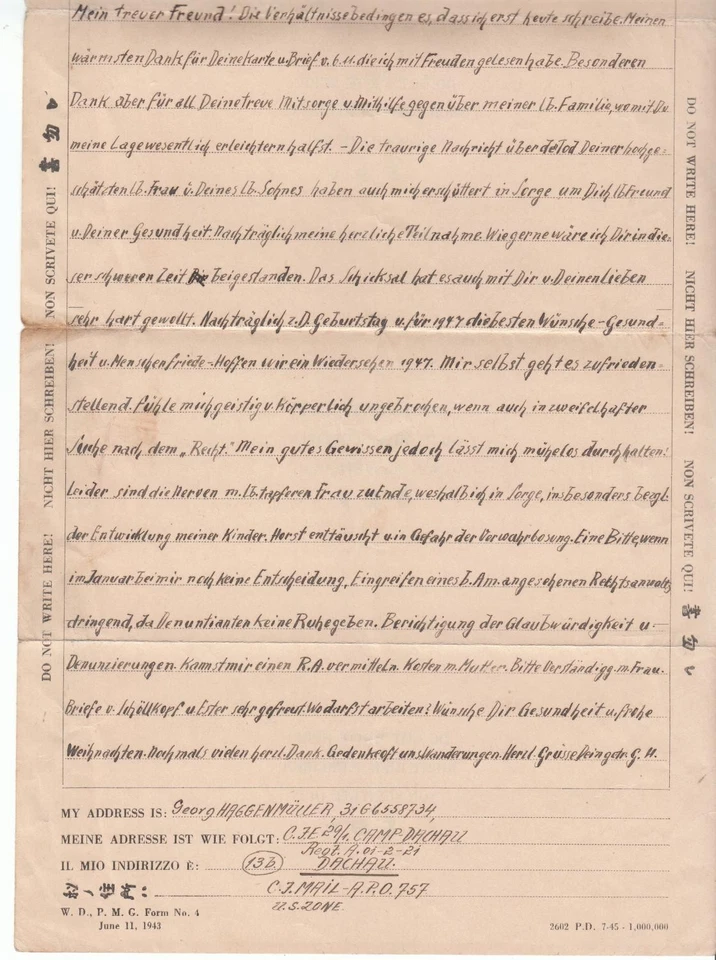 Mein treuer Freund! Die Verhältnisse bedingen es, dass ich erst heute schreibe. Meinen
wärmsten Dank für Deine Karte u. Brief v. 6.11. die ich mit Freuden gelesen habe. Besonderen
Dank aber für all Deine treue Mitsorge u. Mithilfe gegenüber meiner lb. Familie, womit Du
meine Lage wesentlich erleichtern halfst. – Die traurige Nachricht über de Tod Deiner hochge=
schätzten lb. Frau u. Deines lb. Sohnes haben auch mich erschüttert in Sorge um Dich lb. Freund
u. Deiner Gesundheit. Nachträglich meine herzliche Teilnahme. Wie gerne wäre ich Dir in die=
ser schweren Zeit beigestanden. Das Schicksal hat es auch mit Dir u. Deinen Lieben
sehr hart gewollt. Nachträglich z. D. Geburtstag u. für 1947 die besten Wünsche – Gesund=
heit u. Menschenfriede – Hoffen wir ein Wiedersehen 1947. Mir selbst geht es zufrieden=
stellend. Fühle mich geistig u. körperlich ungebrochen, wenn auch in zweifelhafter
Suche nach dem „Recht." Mein gutes Gewissen jedoch lässt mich mühelos durchhalten.
Leider sind die Nerven m. lb. tapferen Frau zu Ende, weshalb ich in Sorge, insbesonders bezgl.
der Entwicklung meiner Kinder. Horst enttäuscht u. in Gefahr der Verwahrlosung. Eine Bitte, wenn
im Januar bei mir noch keine Entscheidung, Eingreifen eines b. Am. angesehenen Rechtsanwalts
dringend, da Denuntianten keine Ruhe geben. Berichtigung der Glaubwürdigkeit u.
Denunzierungen. Kannst mir einen R.A. vermitteln. Kosten m. Mutter. Bitte Verständigg. m. Frau.
Briefe v. Schöllkopf u. Ester sehr gefreut. Wo darfst arbeiten? Wünsche Dir Gesundheit u. frohe
Weihnachten. Nochmals vielen herzl. Dank. Gedenke oft uns. Wanderungen. Herzl. Grüsse Dein getr. G. H.
DO NOT WRITE HERE! NICHT HIER SCHREIBEN! NON SCRIVETE QUI!
DO NOT WRITE HERE! NICHT HIER SCHREIBEN! NON SCRIVETE QUI!
MY ADDRESS IS: Georg HAGGENMÜLLER, 31G6558734,
MEINE ADRESSE IST WIE FOLGT: C.I.E 29/1. CAMP-DACHAU
Regt. A. 01-2-21
IL MIO INDIRIZZO È: 13b. DACHAU.
C.I. MAIL - A.P.O. 757
U.S. ZONE.
W. D., P. M. G. Form No. 4
June 11, 1943
2602 P.D. 7-45 - 1,000,000